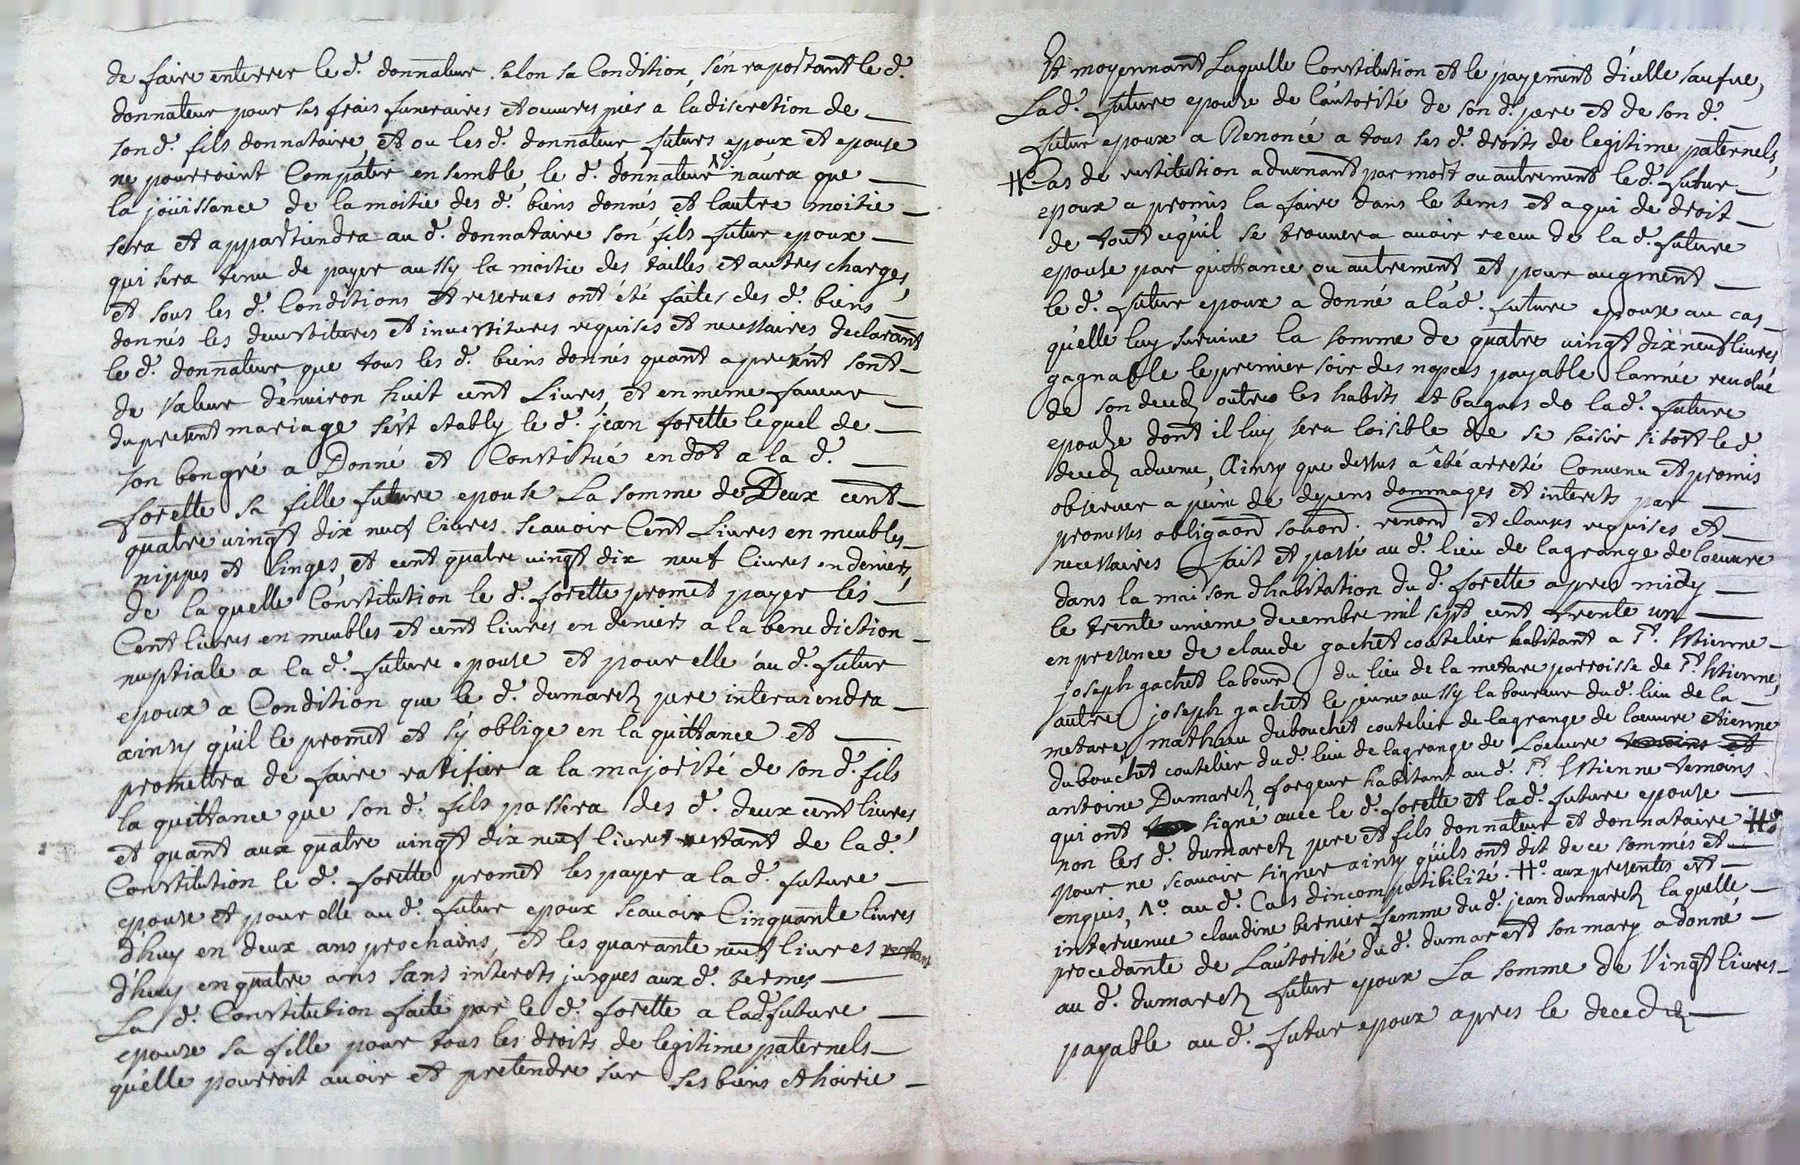 de faire enterrer le d. donnateur selon sa Condition, s'en raportant le d.
donnateur pour ses frais funeraires et oeuvres pies a la discretion de
son d. fils donnataire, et ou les d. donnateur futurs epoux et epouse
ne pourroint Compatir ensemble, le d. donnateur 1° n'aura que
la joüissance de la moitie des d. biens donnés, et l'autre moitie
sera et appartiendra au d. donnataire son fils futur epoux
qui sera tenu de payer aussy la moitie des tailles et autres charges,
et sous les d. Conditions et reserves ont été faites des d. biens
donnés les devestitures et investitures requises et necessaires declarant
le d. donnateur que tous les d. biens donnés quant a present sont
de Valeur d'environ huit cent Livres, et en meme faveur
du present mariage s'est etably le d. jean forette lequel de
son bon gré a Donné et Constitué en dot a la d.
forette sa fille future epouse La somme de Deux cent
quatre vingt dix neuf livres. scavoir Cent Livres en meubles
nippes et linges, et cent quatre vingt dix neuf livres en deniers,
de laquelle Constitution le d. forette promet payer les
Cent livres en meubles et cent livres en deniers a la benediction
nuptiale a la d. future epouse et pour elle au d. futur
epoux a Condition que le d. dumarest pere interviendra
ainsy qu'il le promet et s'y oblige en la quittance et
promettra de faire ratifier a la majorité de son d. fils
la quittance que son d. fils passera des d. deux cent livres
et quant aux quatre vingt dix neuf livres restant de la d.
Constitution le d. forette promet les payer a la d. future
epouse et pour elle au d. futur epoux scavoir Cinquante livres
d'huy en deux ans prochains, et les quarante neuf livres restant
d'huy en quatre ans sans interets jusques aux d. termes
La d. Constitution faite par le d. forette a la d future
epouse sa fille pour tous les droits de legitime paternels
qu'elle pourroit avoir et pretendre sur ses biens et hoirie
Et moyennant Laquelle Constitution et le payement d'icelle sauf
La d. future epouse de l'autorité de son d. pere et de son d.
futur epoux a Renoncé a tous ses d. droits de legitime paternels,
# Cas de restitution advenant par mort ou autrement le d. futur
epoux a promis la faire dans le tems et a qui de droit
de tout ce qu'il se trouvera avoir receu de la d. future
epouse par quittance ou autrement et pour augment
le d. futur epoux a donné a la d. future epouse au cas
qu'elle luy survive la somme de quatre vingt dix neuf livres
gagnable le premier soir des nopces payable l'année revolue
de son deced outre les habits et bagues de la d. future
epouse dont il luy sera loisible de se saisir sitost le d.
deced advenu, Ainsy que dessus a été arreté Convenu et promis
observer a peine de depens dommages et interets par
promesses obligaon soumon. renon et clauses requises et
necessaires fait et passé au d. lieu de lagrange de loeuvre
dans la maison d'habitation du d. forette apres midy
le trente unieme decembre mil sept cent trente un
en presence de claude gachet coutelier habitant a St. Estienne
joseph gachet labour du lieu de la metare parroisse de St. Estienne,
autre joseph gachet le jeune aussy laboureur du d. lieu de la
metare, mathieu dubouchet coutelier de lagrange de loeuvre etienne
dubouchet coutelier du d. lieu de lagrange de Loeuvre temoins et
antoine Dumarest forgeur habitant au d. St. Estienne temoins
qui ont signé avec le d. forette et la d. future epouse
non les d. dumarest pere et fils donnateur et donnataire #°
pour ne scavoir signer ainsy qu'ils ont dit de ce sommés et
enquis, 1° au d. Cas d'incompatibilité. #° aux presentes est
intervenue claudine bernier femme du d. jean dumarest laquelle
procedante de L'autorité du d. dumarest son mary a donné
au d. dumarest futur epoux La somme de Vingt livres
payable au d. futur epoux apres le deced